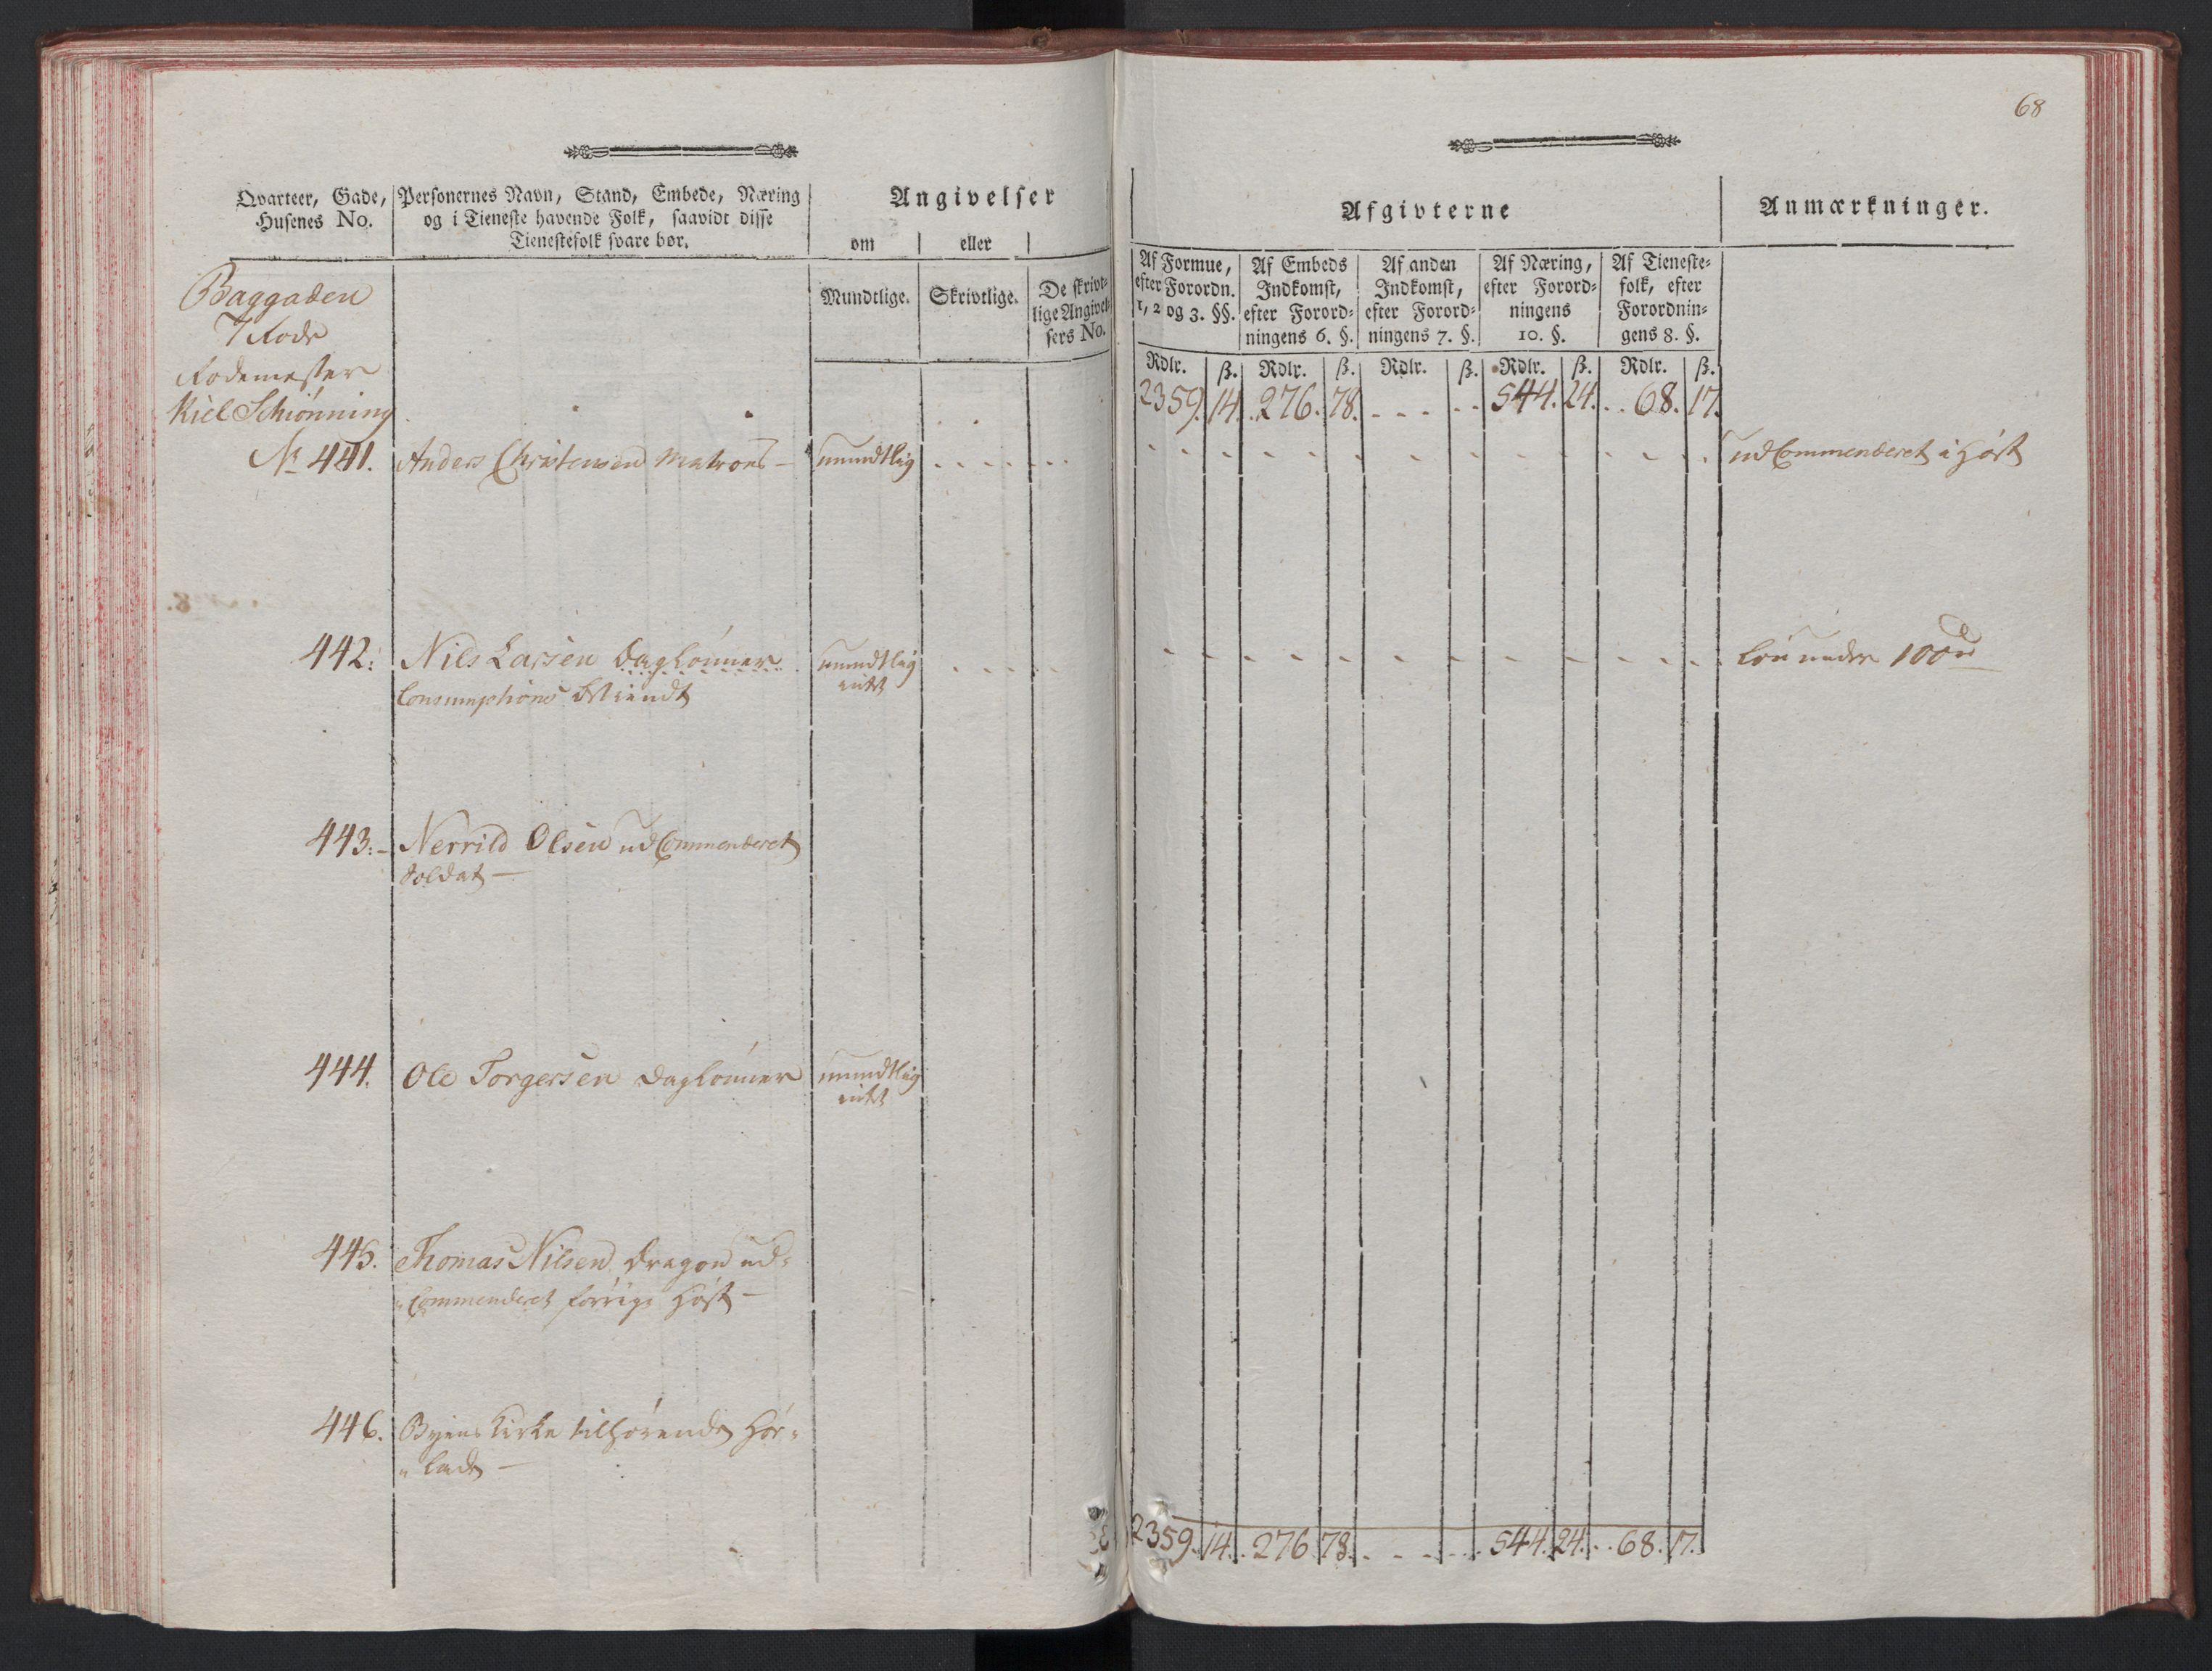 68
Qvarteer, Gade,
Husenes No.
Personernes Navn, Stand, Embede, Næring
og i Tieneste havende Folk, saavidt disse
Tienestefolk svare bør.
Angivelser
om | eller |
Mundtlige. Skrivtlige.
De skrivt-
lige Angivel-
sers No.
Afgivterne
Anmærkninger.
Af Formue,
efter Forordn.
1, 2 og 3. §§.
Af Embeds
Indkomst,
efter Forord-
ningens 6. §.
Af anden
Indkomst,
efter Forord-
ningens 7. §.
Af Næring,
efter Forord-
ningens
10. §.
Af Tieneste-
folk, efter
Forordnin-
gens 8. §.
Rdlr. ß. Rdlr. ß. Rdlr. ß. Rdlr. ß. Rdlr. ß.
Baggaden
7 Rode
Rodemester
Kiel Schiønning
2359. 14. 276. 78. - - - - - 544. 24. . . 68. 17.
No 441. Anders Christensen Matros - mundtlig - - - - - - udCommenderet i Høst
442: Nils Larsen Daglønner mundtlig - - - - Løn under 100 rd
Consumptions Betiendt intet
443:- Nerrild Olsen udCommenderet
Soldat -
444. Ole Torgersen Daglønner mundtlig
intet
445. Thomas Nilsen Dragon ud-
Commenderet forrige Høst -
446. Byens Kirke tilhørende Hør-
lade -
2359. 14. 276. 78. - - - - - 544. 24. . . 68. 17.